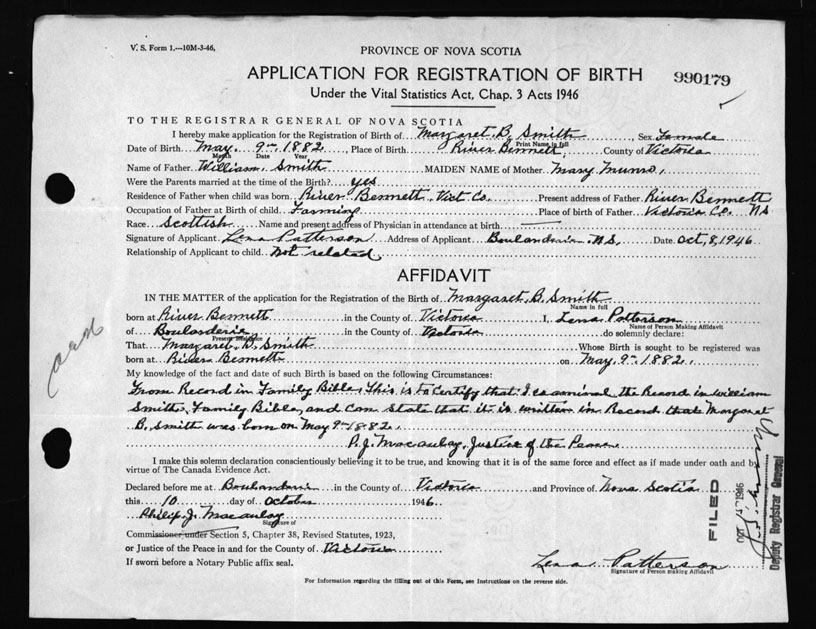 V. S. Form 1.—10M-3-46.
PROVINCE OF NOVA SCOTIA
APPLICATION FOR REGISTRATION OF BIRTH
990179
Under the Vital Statistics Act, Chap. 3 Acts 1946
TO THE REGISTRAR GENERAL OF NOVA SCOTIA
I hereby make application for the Registration of Birth of Margaret. B. Smith, Sex Female
Print Name in full
Date of Birth May. 9th 1882, Place of Birth River Bennett, County of Victoria
Month Date Year
Name of Father William Smith MAIDEN NAME of Mother Mary Munro,
Were the Parents married at the time of the Birth? yes
Residence of Father when child was born River Bennett, Vict Co. Present address of Father River Bennett
Occupation of Father at Birth of child Farming Place of birth of Father Victoria Co. NS
Race Scottish Name and present address of Physician in attendance at birth
Signature of Applicant Lena Patterson Address of Applicant Boularderie N.S. Date Oct, 8, 1946
Relationship of Applicant to child not related
AFFIDAVIT
IN THE MATTER of the application for the Registration of the Birth of Margaret. B. Smith
Name in full
born at River Bennett in the County of Victoria I, Lena Patterson
Name of Person Making Affidavit
of Boularderie in the County of Victoria do solemnly declare:
Present Residence
That Margaret. B. Smith Whose Birth is sought to be registered was
born at River Bennett on May. 9th 1882.
My knowledge of the fact and date of such Birth is based on the following Circumstances:
From Record in Family Bible, This is to Certify that I examined the Record in William
Smiths, Family Bible, and Can state that it is written in Record that Margaret
B. Smith was born on May 9th 1882.
P. J. Macaulay, Justice of the Peace
I make this solemn declaration conscientiously believing it to be true, and knowing that it is of the same force and effect as if made under oath and by
virtue of The Canada Evidence Act.
Declared before me at Boularderie in the County of Victoria and Province of Nova Scotia
this 10 day of October 1946
Philip J. Macaulay
Signature of
Commissioner under Section 5, Chapter 38, Revised Statutes, 1923,
or Justice of the Peace in and for the County of Victoria
If sworn before a Notary Public affix seal.
Lena Patterson
Signature of Person making Affidavit
For Information regarding the filling out of this Form, see Instructions on the reverse side.
FILED
1946
Deputy Registrar General